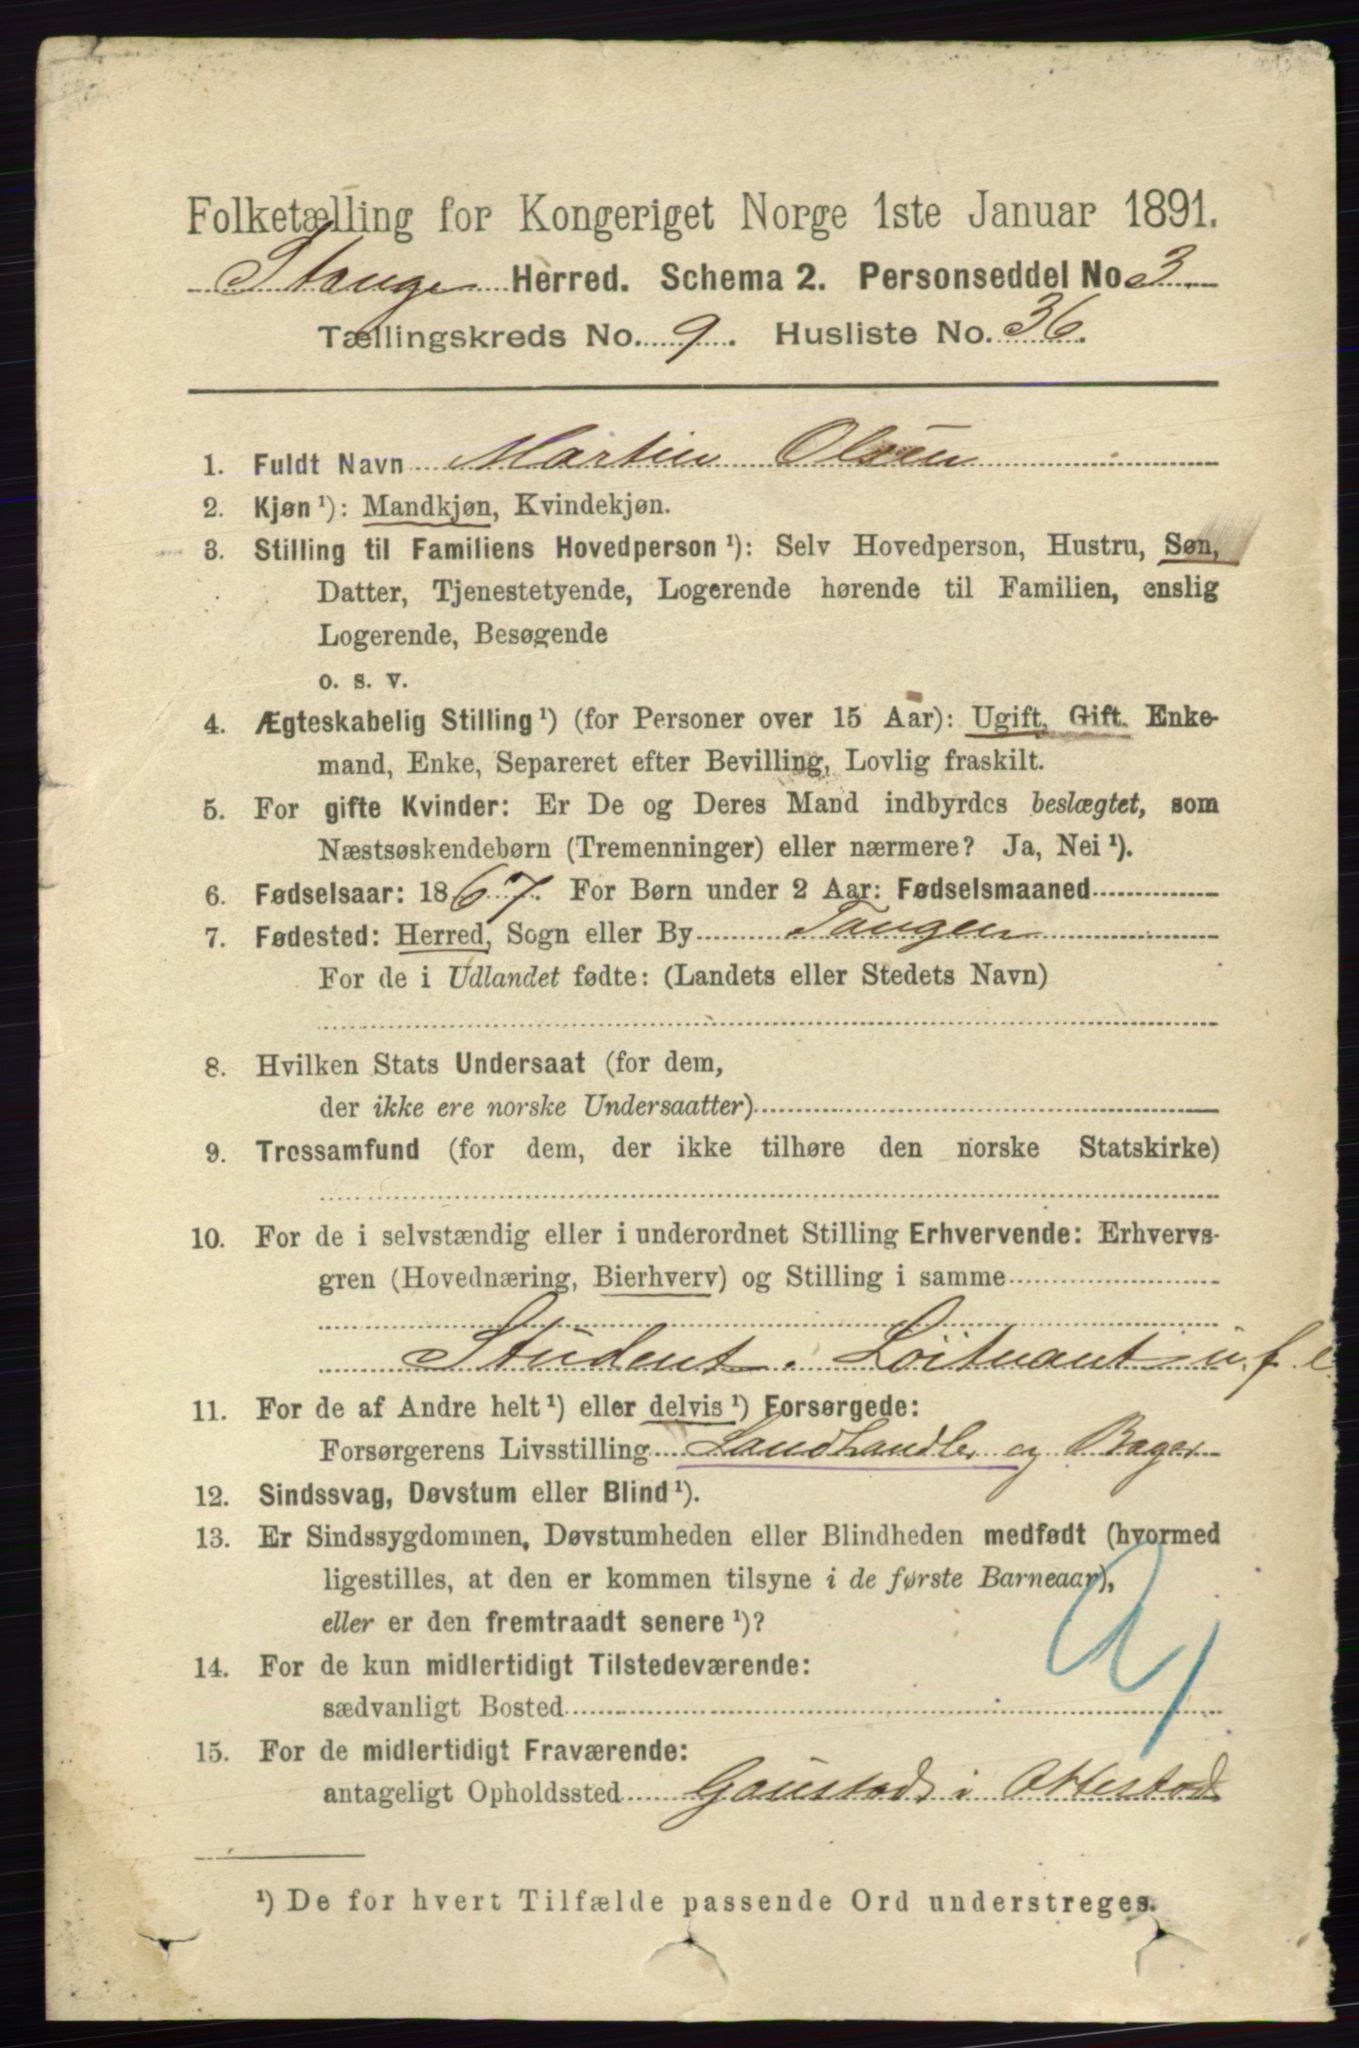 Folketælling for Kongeriget Norge 1ste Januar 1891.
Stange Herred. Schema 2. Personseddel No 3.
Tællingskreds No. 9. Husliste No. 36.
1. Fuldt Navn Martin Olsen
2. Kjøn¹): Mandkjøn, Kvindekjøn.
3. Stilling til Familiens Hovedperson¹): Selv Hovedperson, Hustru, Søn,
Datter, Tjenestetyende, Logerende hørende til Familien, enslig
Logerende, Besøgende
o. s. v.
4. Ægteskabelig Stilling¹) (for Personer over 15 Aar): Ugift, Gift. Enke-
mand, Enke, Separeret efter Bevilling, Lovlig fraskilt.
5. For gifte Kvinder: Er De og Deres Mand indbyrdes beslægtet, som
Næstsøskendebørn (Tremenninger) eller nærmere? Ja, Nei¹).
6. Fødselsaar: 1867. For Børn under 2 Aar: Fødselsmaaned
7. Fødested: Herred, Sogn eller By Tangen
For de i Udlandet fødte: (Landets eller Stedets Navn)
8. Hvilken Stats Undersaat (for dem,
der ikke ere norske Undersaatter)
9. Trossamfund (for dem, der ikke tilhøre den norske Statskirke)
10. For de i selvstændig eller i underordnet Stilling Erhvervende: Erhvervs-
gren (Hovednæring, Bierhverv) og Stilling i samme
Student. Løitnant
11. For de af Andre helt¹) eller delvis¹) Forsørgede:
Forsørgerens Livsstilling Landhandler og Bager
12. Sindssvag, Døvstum eller Blind¹).
13. Er Sindssygdommen, Døvstumheden eller Blindheden medfødt (hvormed
ligestilles, at den er kommen tilsyne i de første Barneaar),
eller er den fremtraadt senere¹)?
14. For de kun midlertidigt Tilstedeværende:
sædvanligt Bosted
15. For de midlertidigt Fraværende:
antageligt Opholdssted Gaustad i Ottestad
¹) De for hvert Tilfælde passende Ord understreges.